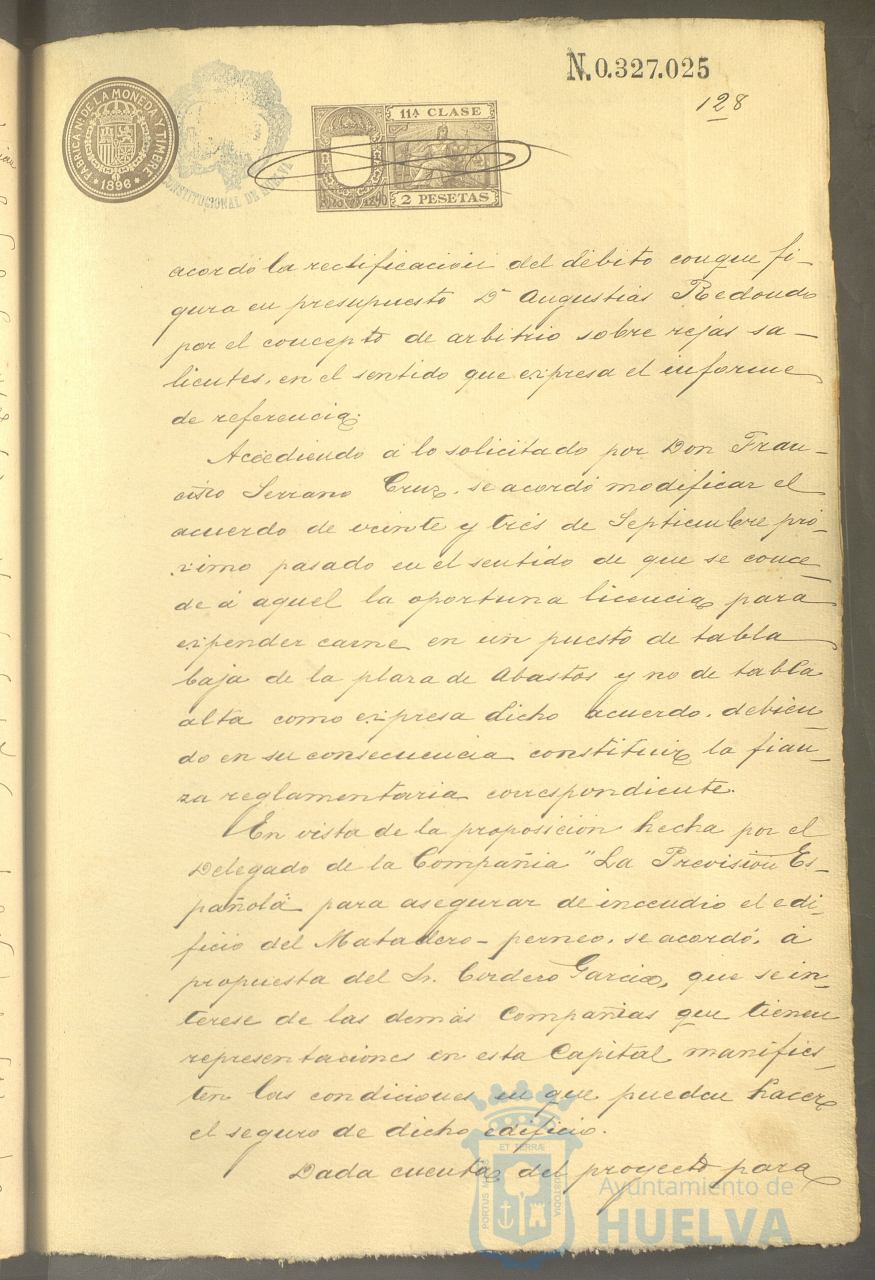 N.0.327.025
128
FÁBRICA NL. DE LA MONEDA Y TIMBRE
* 1896 *
CONSTITUCIONAL DE HUELVA
11ª CLASE
2 PESETAS
acordó la rectificación del débito conque fi-
gura en presupuesto Dª Augustias Redondo
por el concepto de arbitrio sobre rejas sa-
lientes, en el sentido que expresa el informe
de referencia.
Accediendo á lo solicitado por Don Fran-
cisco Serrano Cruz, se acordó modificar el
acuerdo de veinte y tres de Septiembre pró-
ximo pasado en el sentido de que se conce-
de á aquel la oportuna licencia para
expender carne en un puesto de tabla
baja de la plaza de Abastos y no de tabla
alta como expresa dicho acuerdo, debien-
do en su consecuencia constituir la fian-
za reglamentaria correspondiente.
En vista de la proposición hecha por el
Delegado de la Compañía "La Previsión Es-
pañola" para asegurar de incendio el edi-
ficio del Matadero-perneo, se acordó, á
propuesta del Sr. Cordero García, que se in-
terese de las demás Compañías que tienen
representaciones en esta Capital manifies-
ten las condiciones en que pueden hacer
el seguro de dicho edificio.
Dada cuenta del proyecto para
PORTUS MARIS ET TERRÆ CUSTODIA
Ayuntamiento de
HUELVA